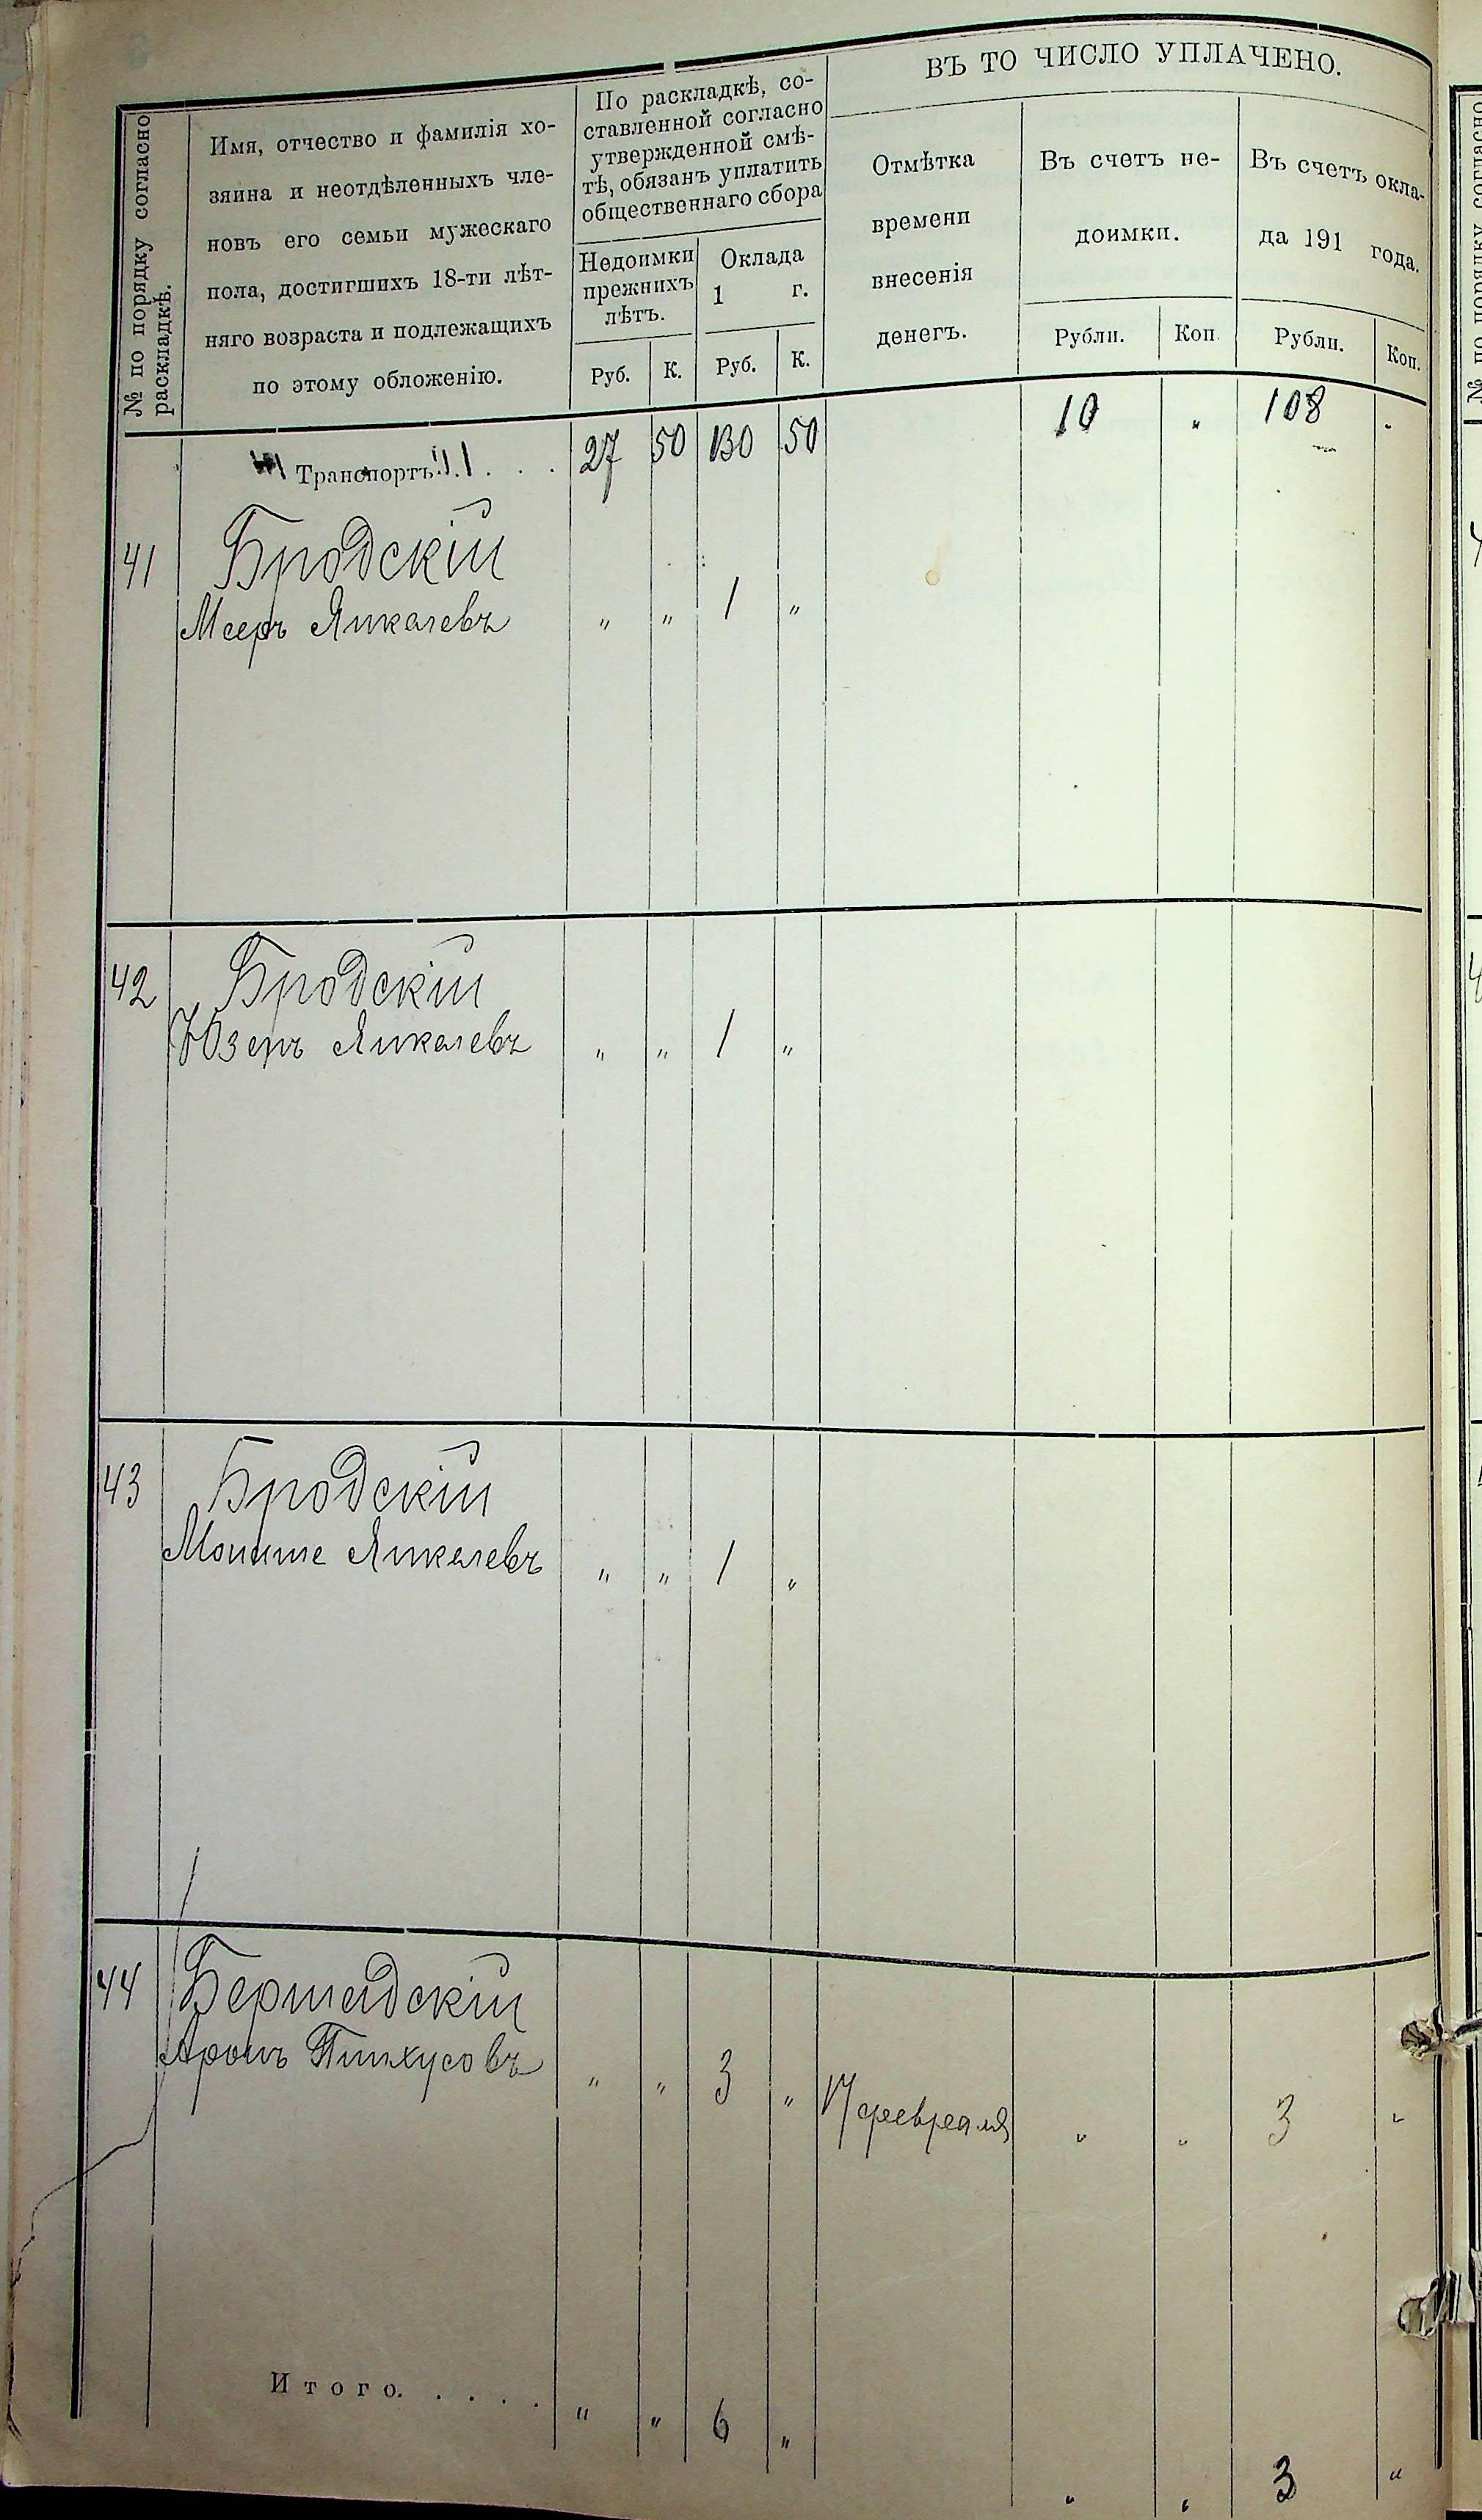 № по порядку согласно
раскладкѣ.
Имя, отчество и фамилія хо-
зяина и неотдѣленныхъ чле-
новъ его семьи мужескаго
пола, достигшихъ 18-ти лѣт-
няго возраста и подлежащихъ
по этому обложенію.
По раскладкѣ, со-
ставленной согласно
утвержденной смѣ-
тѣ, обязанъ уплатить
общественнаго сбора
Недоимки
прежнихъ
лѣтъ.
Руб. К.
Оклада
1 г.
Руб. К.
ВЪ ТО ЧИСЛО УПЛАЧЕНО.
Отмѣтка
времени
внесенія
денегъ.
Въ счетъ не-
доимки.
Рубли. Коп.
Въ счетъ окла-
да 191 года.
Рубли. Коп.
Транспортъ . . . 27 50 130 50 10 „ 108 „
41 Бродскій
Мееръ Янкелевъ „ „ 1 „
42 Бродскій
Юзеръ Янкелевъ „ „ 1 „
43 Бродскій
Мошше Янкелевъ „ „ 1 „
44 Бершадскій
Аронъ Пинхусовъ „ „ 3 „ 17 февраля „ „ 3 „
Итого. . . . . „ „ 6 „ „ „ 3 „